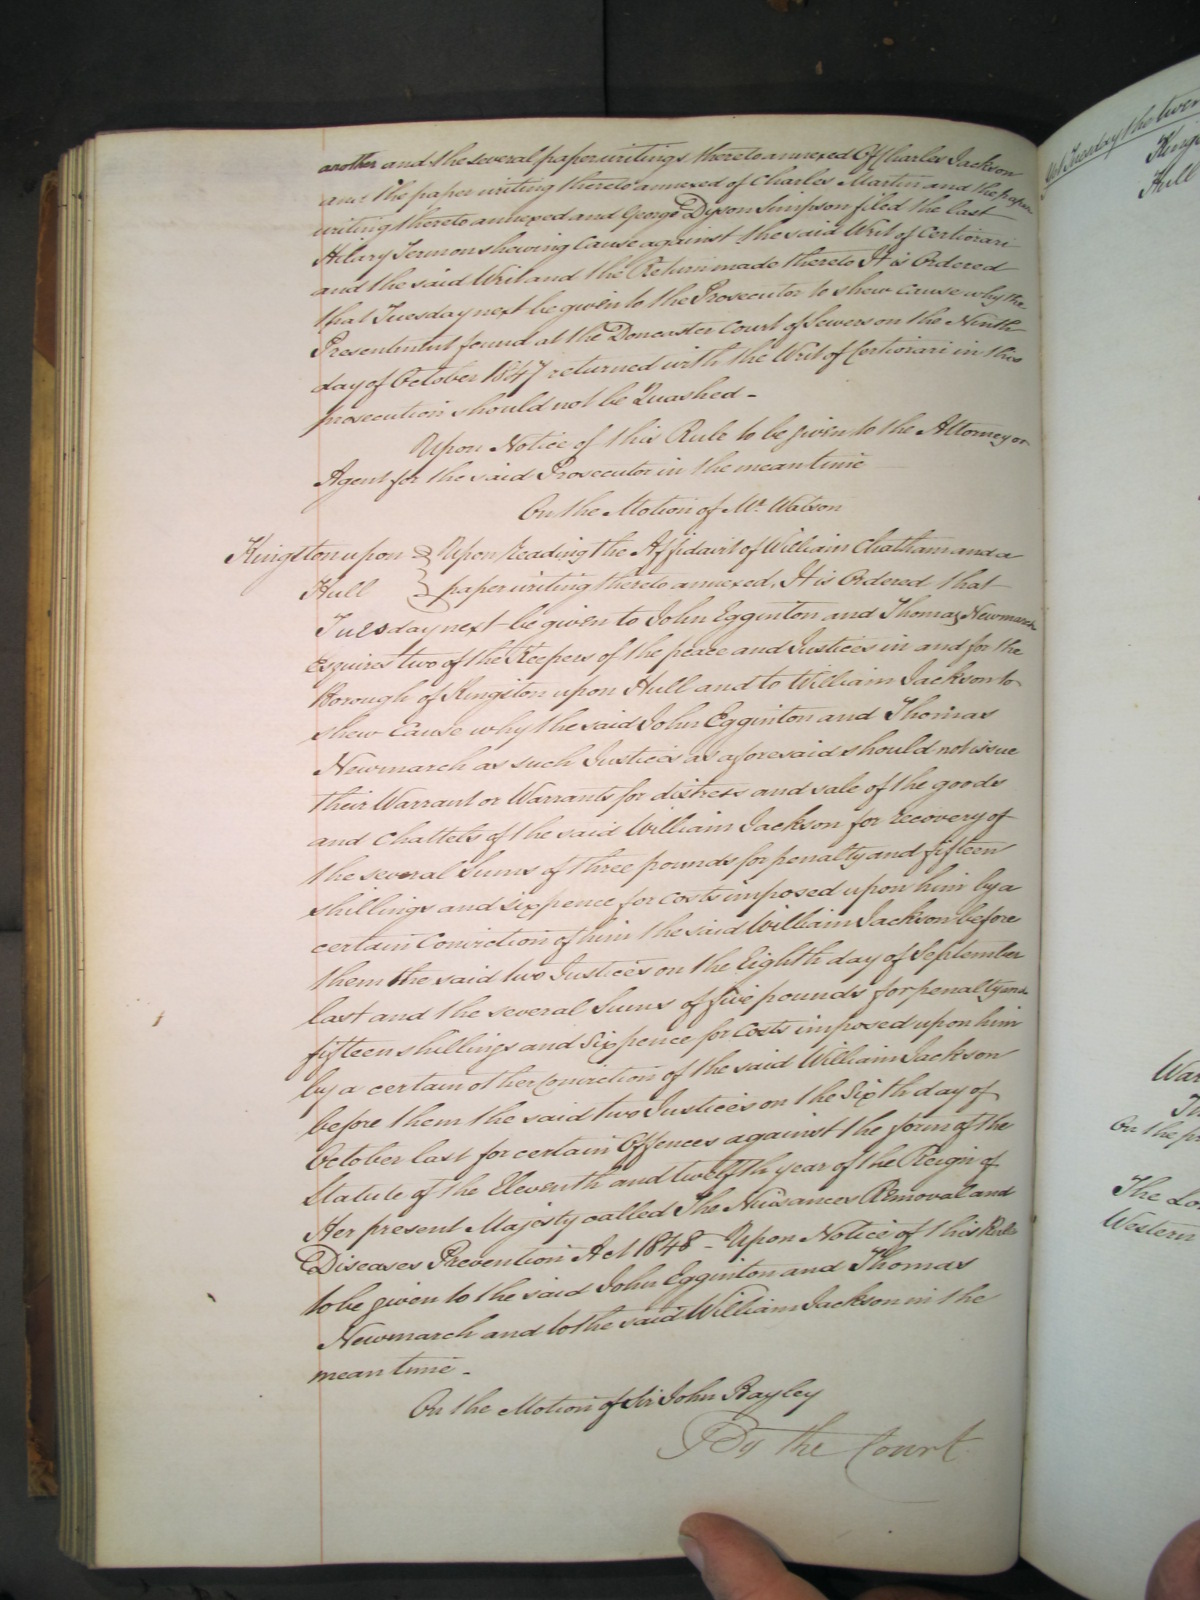 another and the several paper writings thereto annexed Of Charles Jackson
and the paper writing thereto annexed of Charles Martin and the paper
writing thereto annexed and George Dyson Simpson filed the last
Hilary Term on shewing Cause against the said Writ of Certiorari
and the said Writ and the Return made thereto It is Ordered
that Tuesday next be given to the Prosecutor to shew cause why the
Presentment found at the Doncaster Court of Sewers on the Ninth
day of October 1847 returned with the Writ of Certiorari in this
prosecution should not be Quashed -
Upon Notice of this Rule to be given to the Attorney or
Agent for the said Prosecutor in the mean time
On the Motion of Mr. Watson
Kingston upon } Upon Reading the Affidavit of William Chatham and a
Hull } paper writing thereto annexed, It is Ordered that
Tuesday next be given to John Egginton and Thomas Newmarch
Esquires two of the Keepers of the peace and Justices in and for the
Borough of Kingston upon Hull and to William Jackson to
shew Cause why the said John Egginton and Thomas
Newmarch as such Justices as aforesaid should not issue
their Warrant or Warrants for distress and sale of the goods
and Chattels of the said William Jackson for recovery of
the several Sums of three pounds for penalty and fifteen
shillings and sixpence for costs imposed upon him by a
certain Conviction of him the said William Jackson before
them the said two Justices on the Eighth day of September
last and the several Sums of five pounds for penalty and
fifteen shillings and Sixpence for Costs imposed upon him
by a certain other Conviction of the said William Jackson
before them the said two Justices on the Sixth day of
October last for certain Offences against the form of the
Statute of the Eleventh and twelfth year of the Reign of
Her present Majesty called The Nuisances Removal and
Diseases Prevention Act 1848 - Upon Notice of this Rule
to be given to the said John Egginton and Thomas
Newmarch and to the said William Jackson in the
mean time -
On the Motion of Sir John Bayley
By the Court
Tuesday the
Hull
On the
The
Western